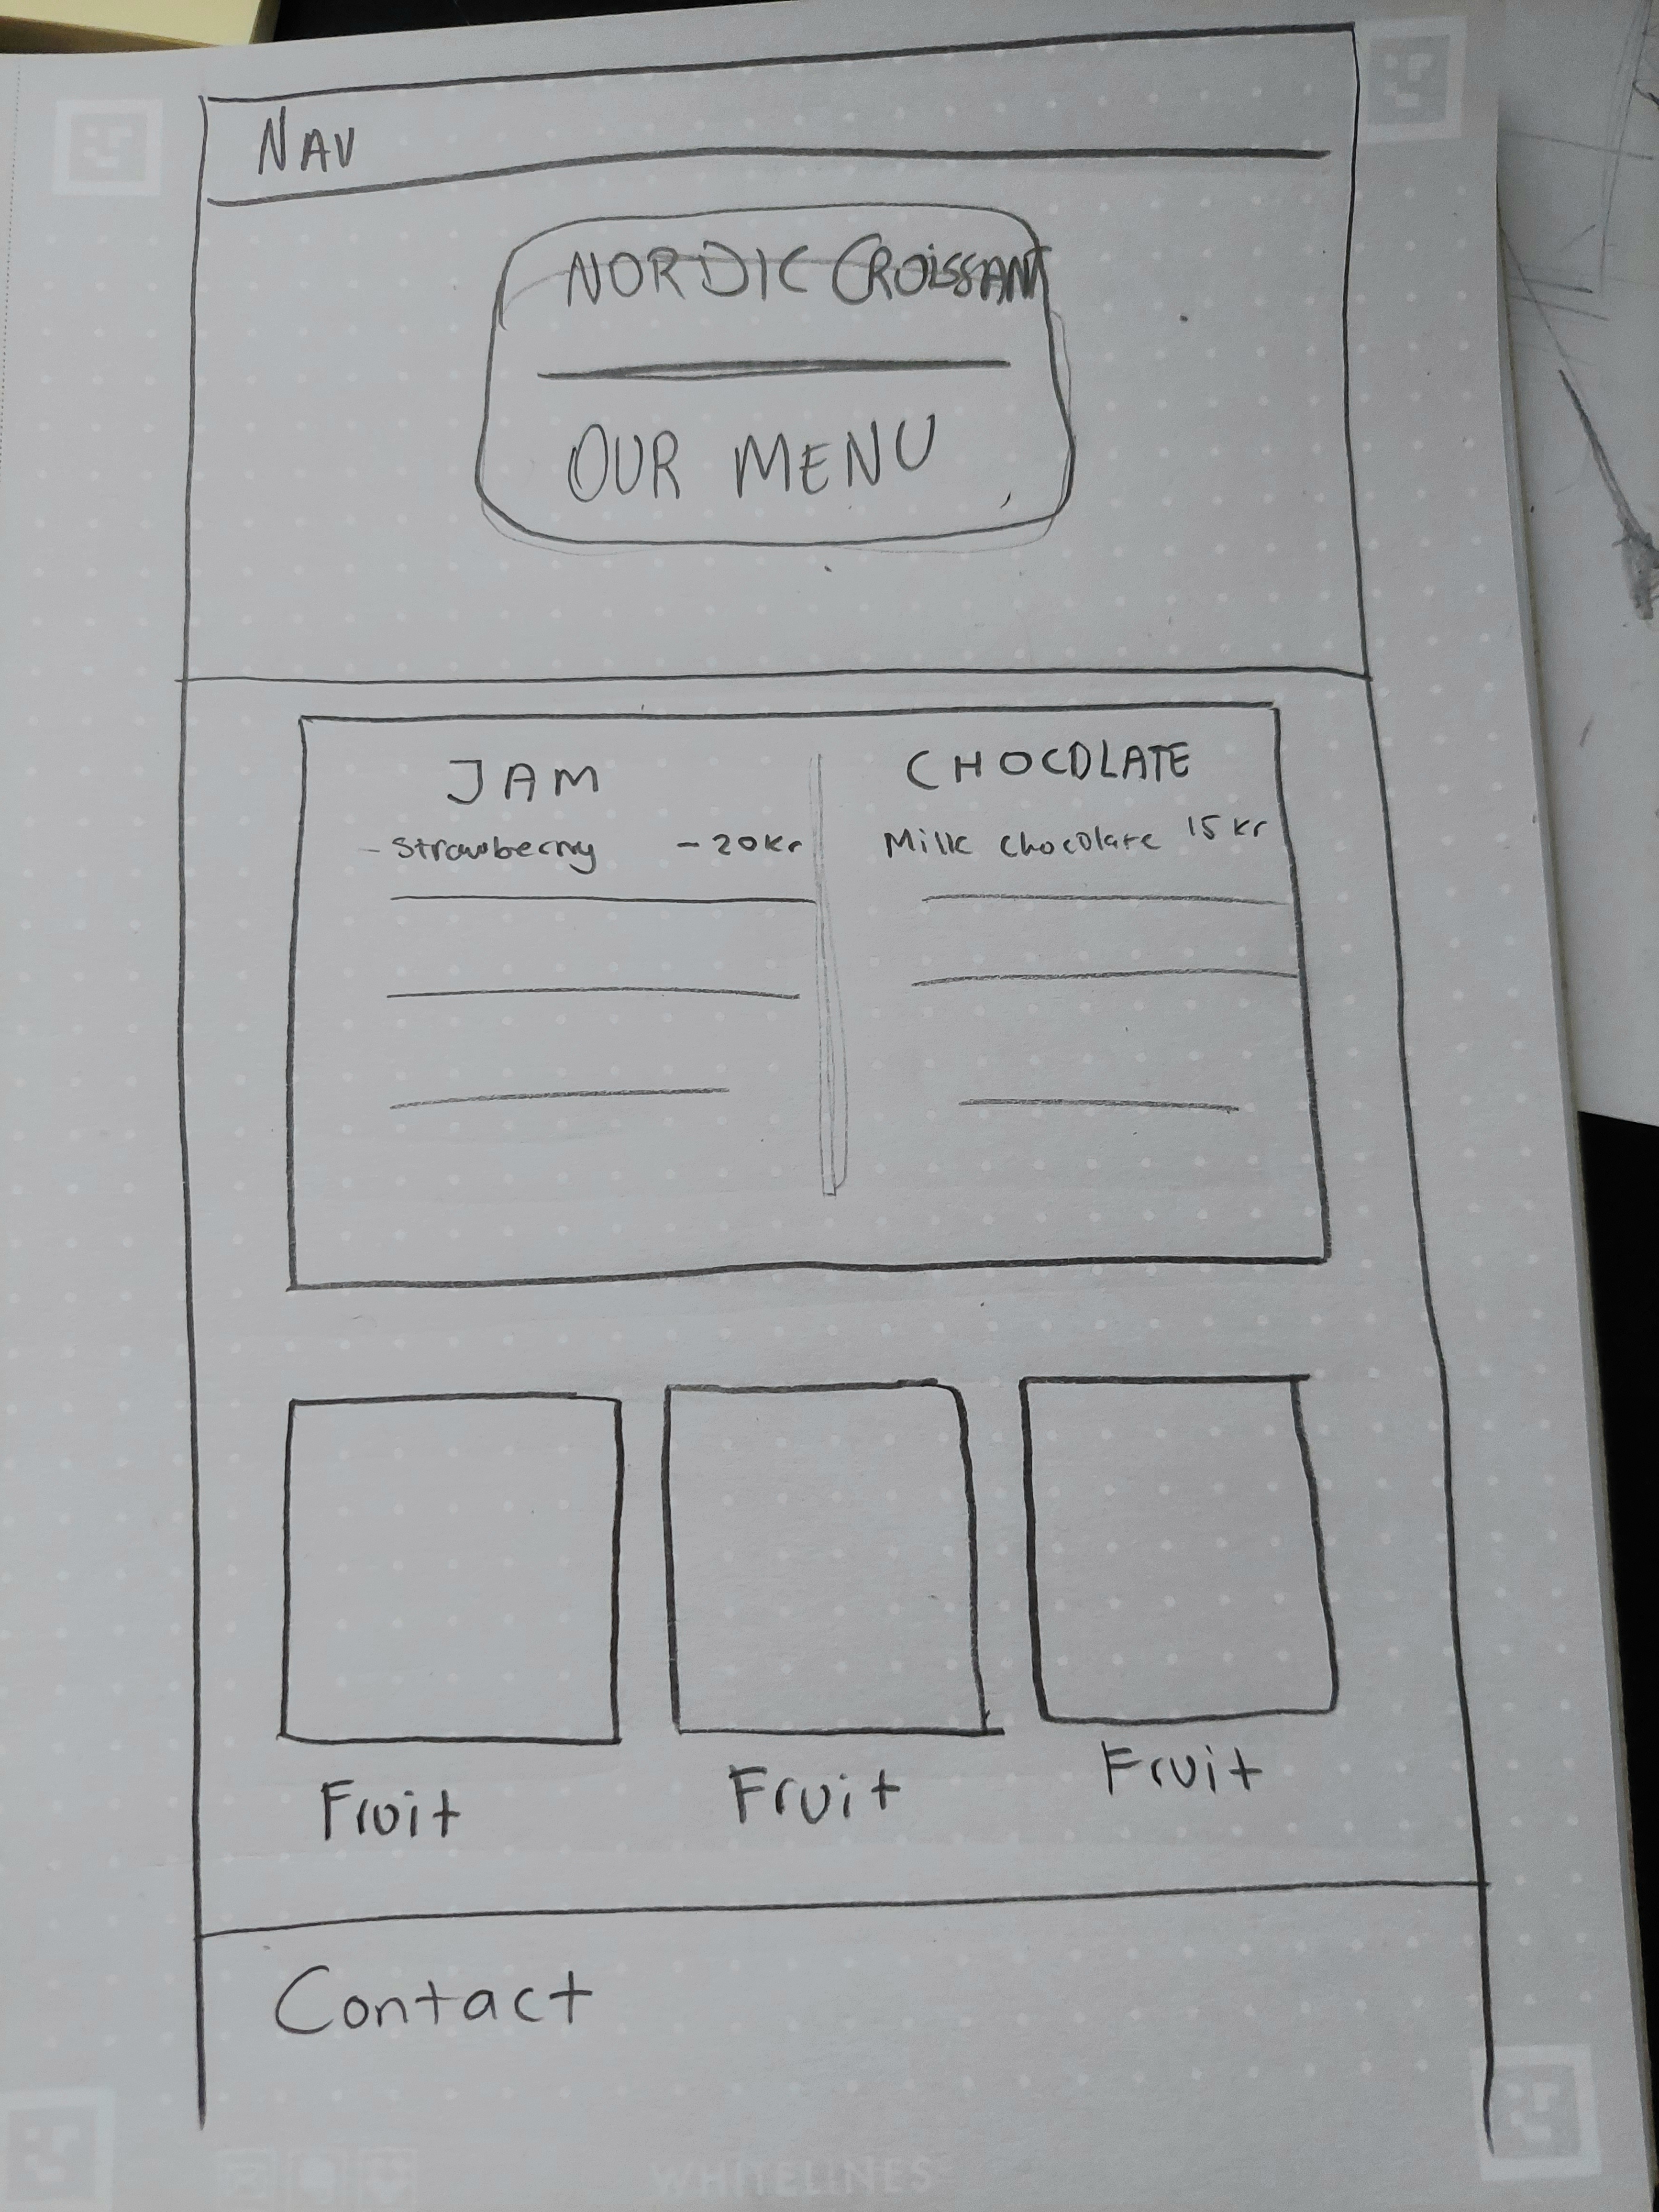 NAV
NORDIC CROISSANT
OUR MENU
JAM
CHOCOLATE
- Strawberry - 20 kr
Milk chocolate 15 kr
Fruit
Fruit
Fruit
Contact
WHITELINES